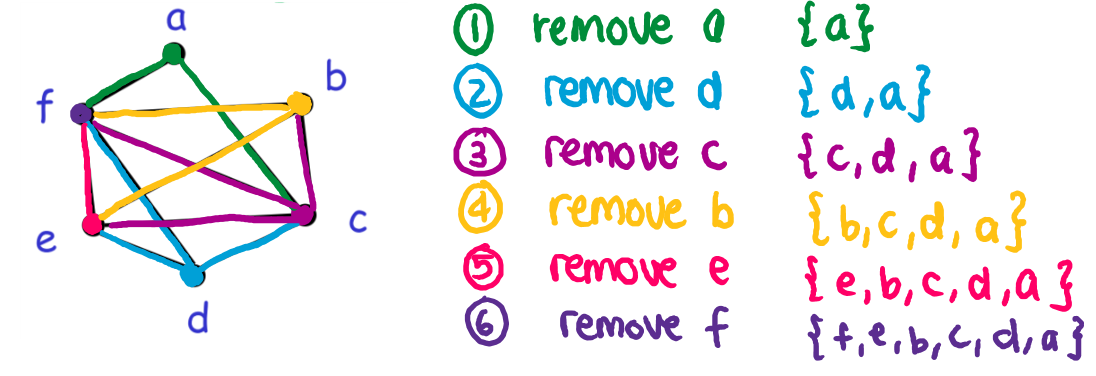 a
b
f
c
e
d
① remove a {a}
② remove d {d,a}
③ remove c {c,d,a}
④ remove b {b,c,d,a}
⑤ remove e {e,b,c,d,a}
⑥ remove f {f,e,b,c,d,a}